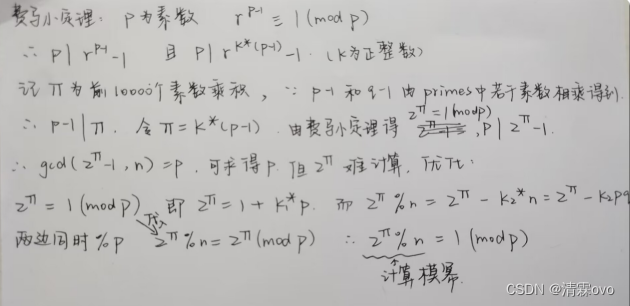 费马小定理: p为素数 r^(p-1) ≡ 1 (mod p)
∴ p | r^(p-1) -1 且 p | r^(k*(p-1)) -1. (k为正整数)
记π为前10000个素数乘积, ∵ p-1 和 q-1 由primes中若干素数相乘得到.
∴ p-1 | π. 令 π = k*(p-1). 由费马小定理得 2^π = 1 (mod p), p | 2^π -1.
∴ gcd(2^π -1, n) = p, 可求得p. 但2^π 难计算, 优化:
2^π = 1 (mod p) 即 2^π = 1 + k₁*p. 而 2^π % n = 2^π - k₂*n = 2^π - k₂pq
两边同时 %p 2^π % n = 2^π (mod p) ∴ 2^π % n = 1 (mod p)
计算模幂
CSDN @清霖ovo